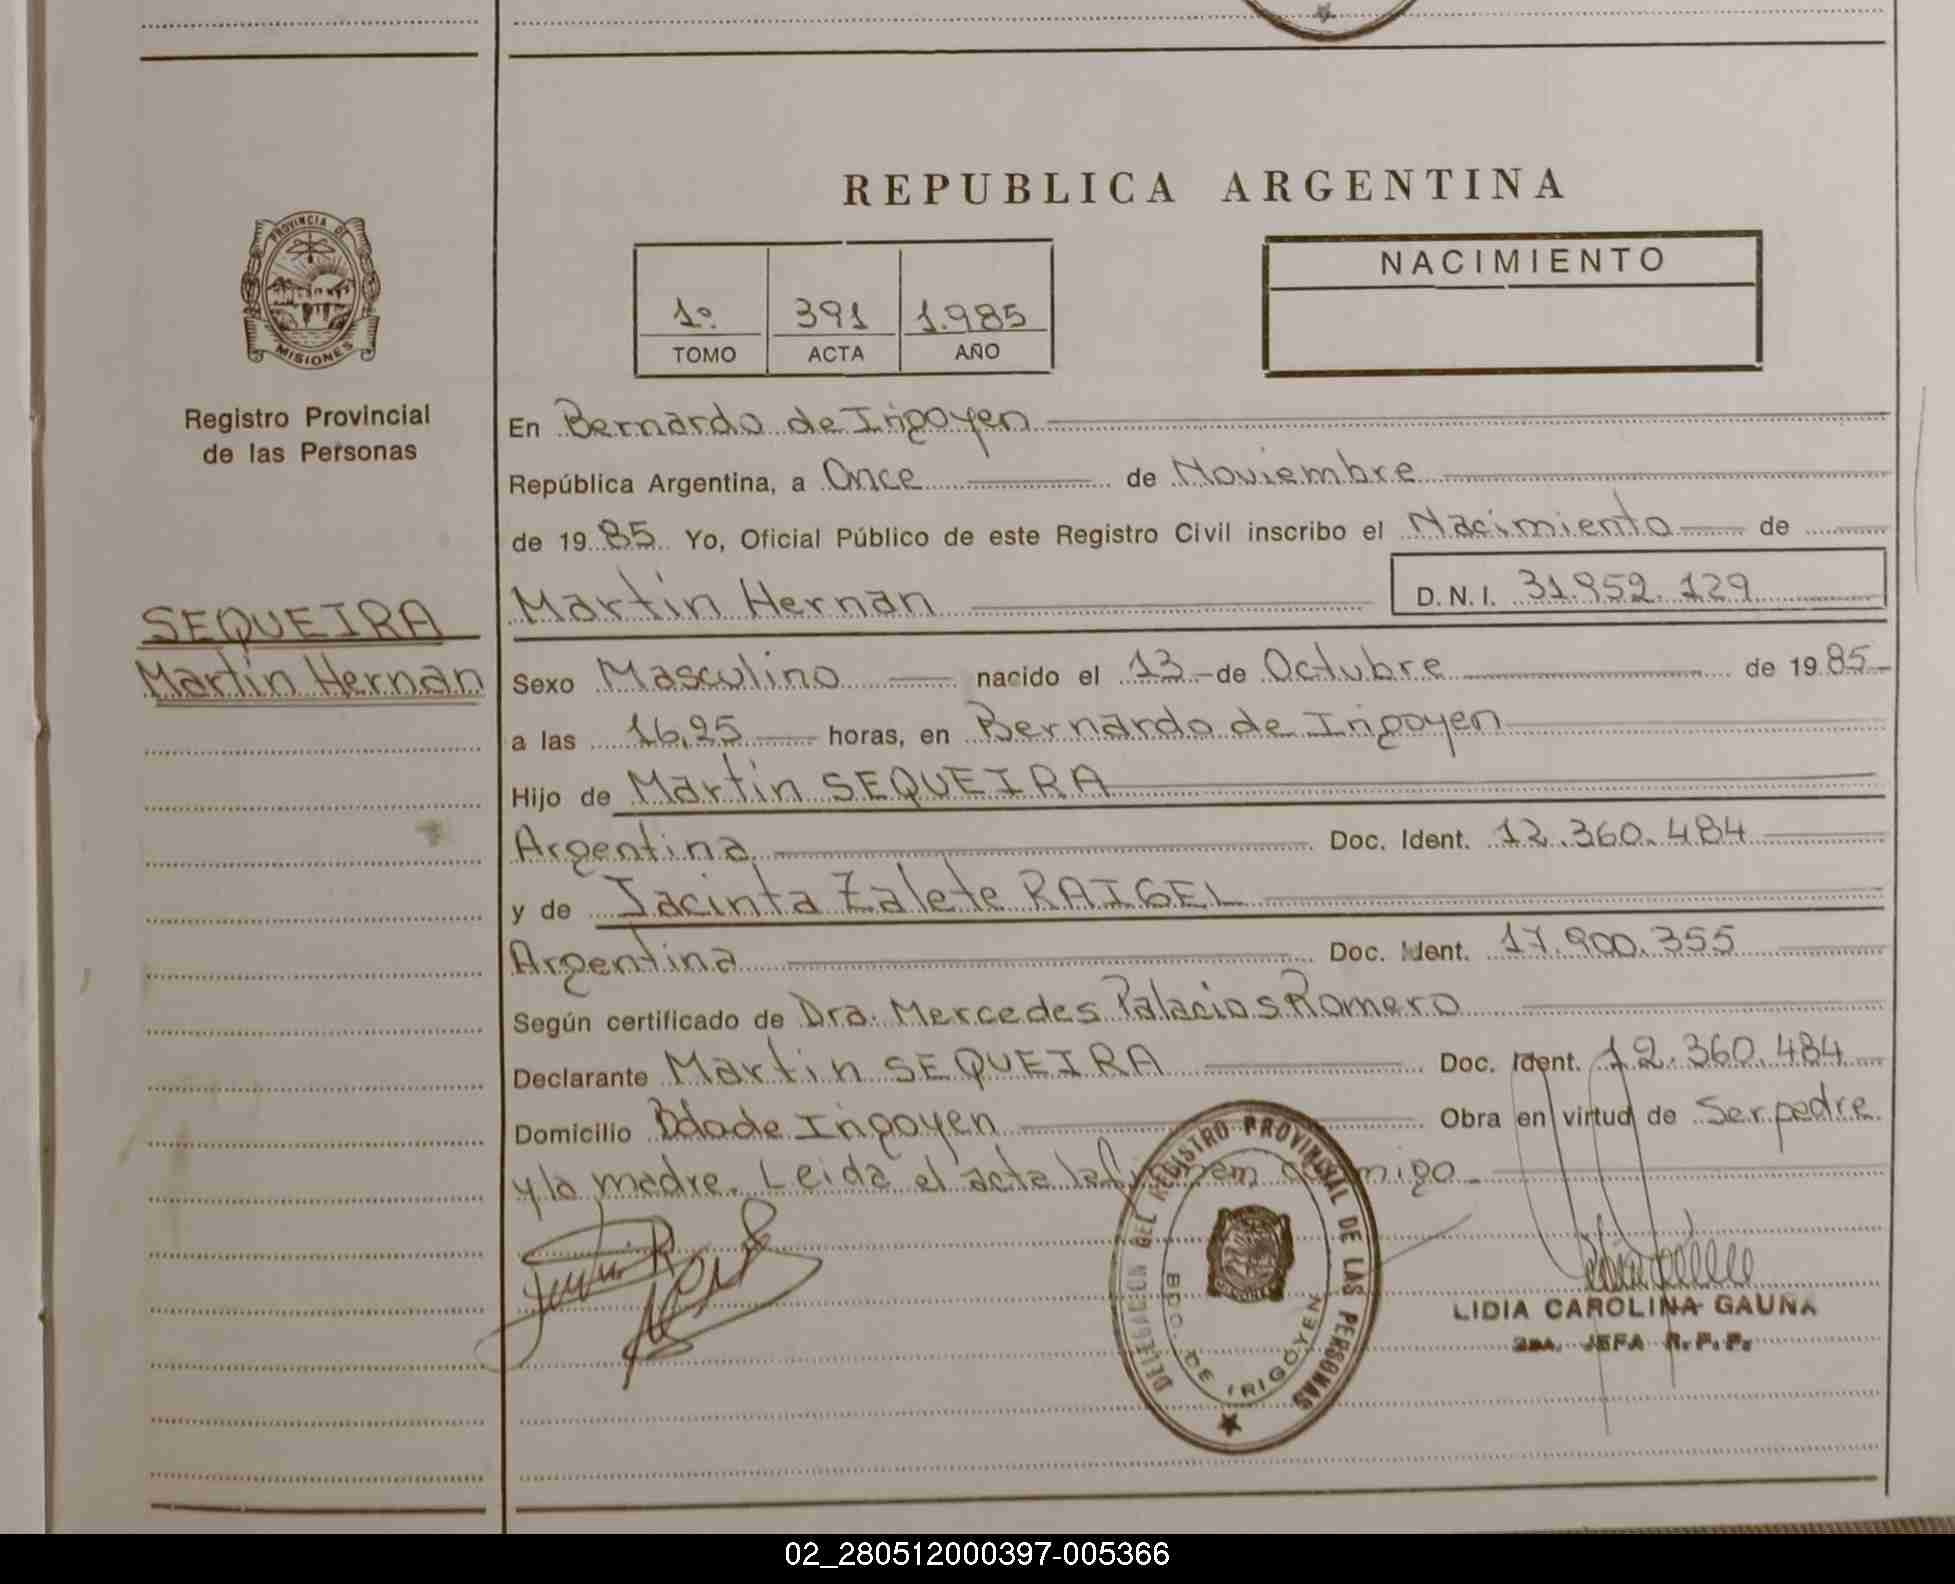 REPUBLICA ARGENTINA
PROVINCIA DE
MISIONES
Registro Provincial
de las Personas
1º 391 1.985
TOMO ACTA AÑO
NACIMIENTO
SEQUEIRA
Martin Hernan
En Bernardo de Irigoyen
República Argentina, a Once de Noviembre
de 19 85 Yo, Oficial Público de este Registro Civil inscribo el Nacimiento de
Martin Hernan D.N.I. 31.952.129
Sexo Masculino nacido el 13 de Octubre de 19 85
a las 16,25 horas, en Bernardo de Irigoyen
Hijo de Martin SEQUEIRA
Argentina Doc. Ident. 12.360.484
y de Jacinta Zalete RAIGEL
Argentina Doc. Ident. 17.900.355
Según certificado de Dra. Mercedes Palacios Romero
Declarante Martin SEQUEIRA Doc. Ident. 12.360.484
Domicilio Bdo de Irigoyen Obra en virtud de Ser padre
y la madre. Leida el acta la firman conmigo
DELEGACION DEL REGISTRO PROVINCIAL DE LAS PERSONAS
BDO. DE IRIGOYEN
LIDIA CAROLINA GAUNA
JEFA R.P.P.
02_280512000397-005366